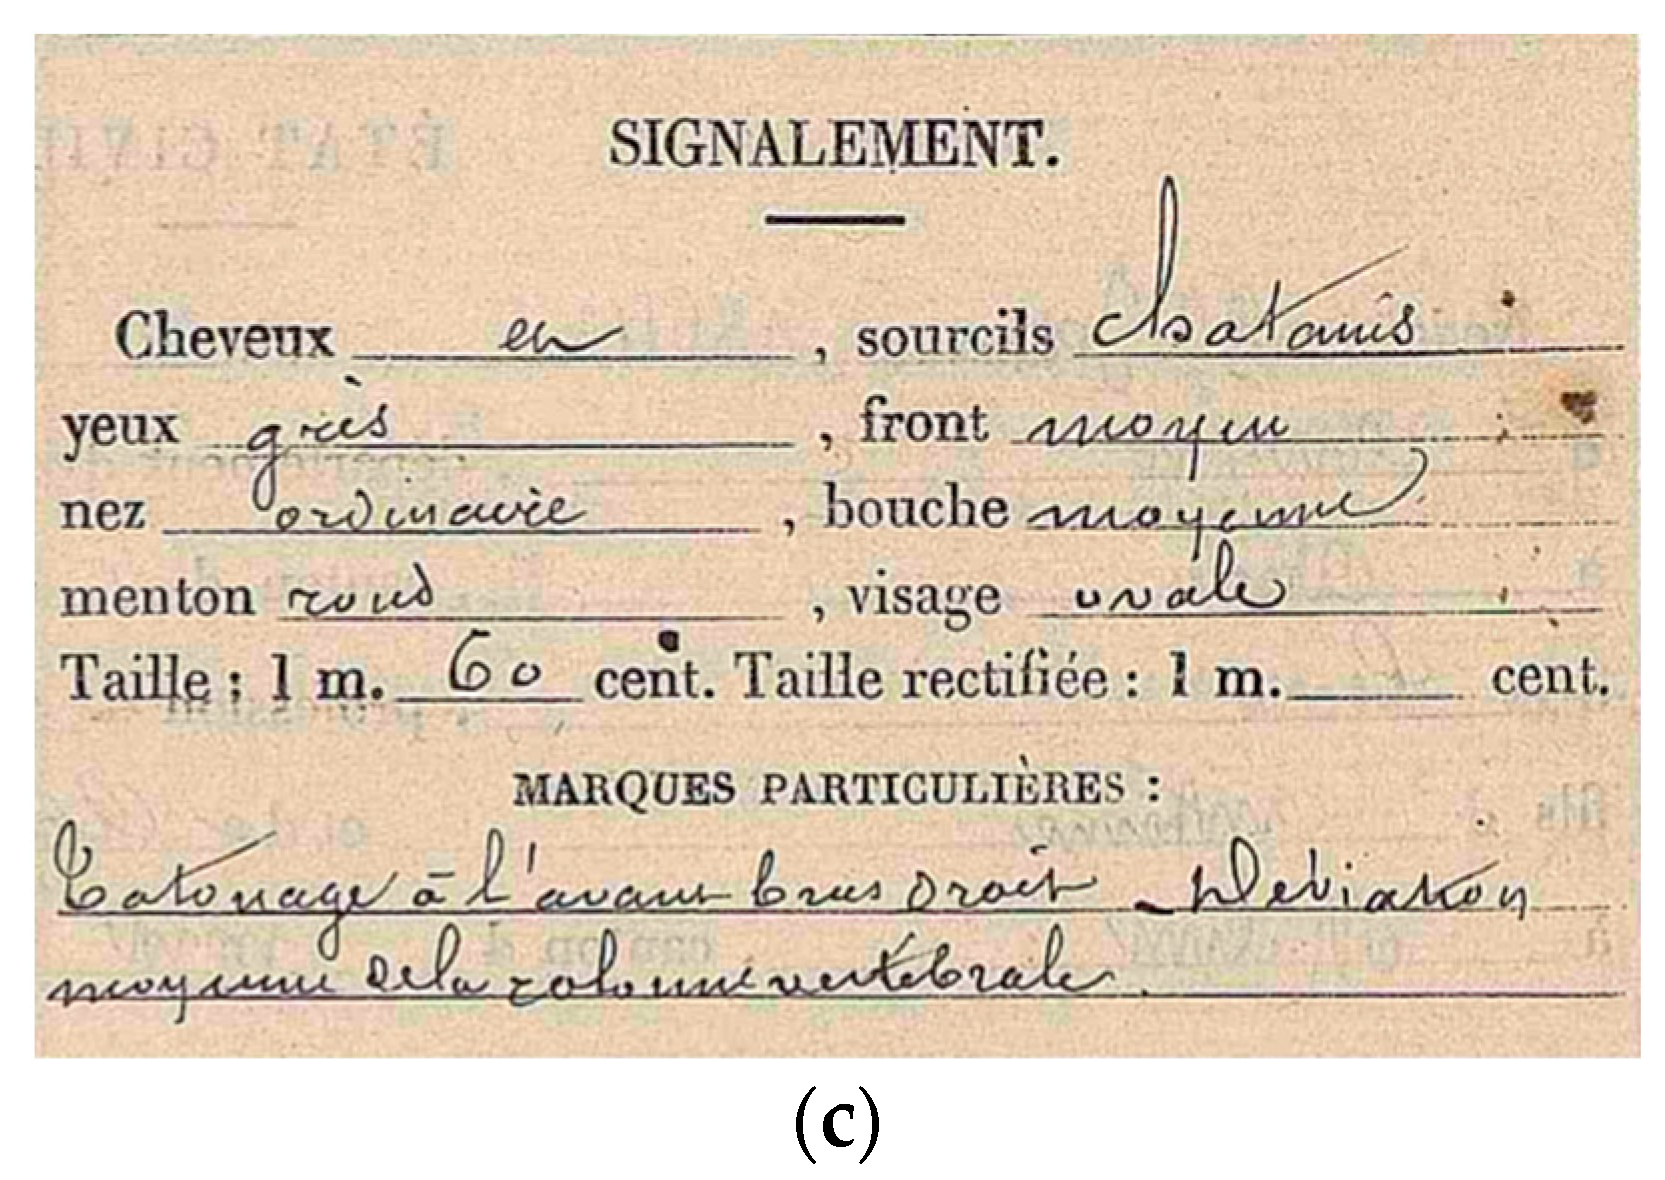 SIGNALEMENT.
Cheveux et, sourcils chatains
yeux gris, front moyen
nez ordinaire, bouche moyenne
menton rond, visage ovale
Taille : 1 m. 60 cent. Taille rectifiée : 1 m. cent.
MARQUES PARTICULIÈRES :
Tatouage à l'avant bras droit - Déviation
moyenne de la colonne vertébrale.
(c)